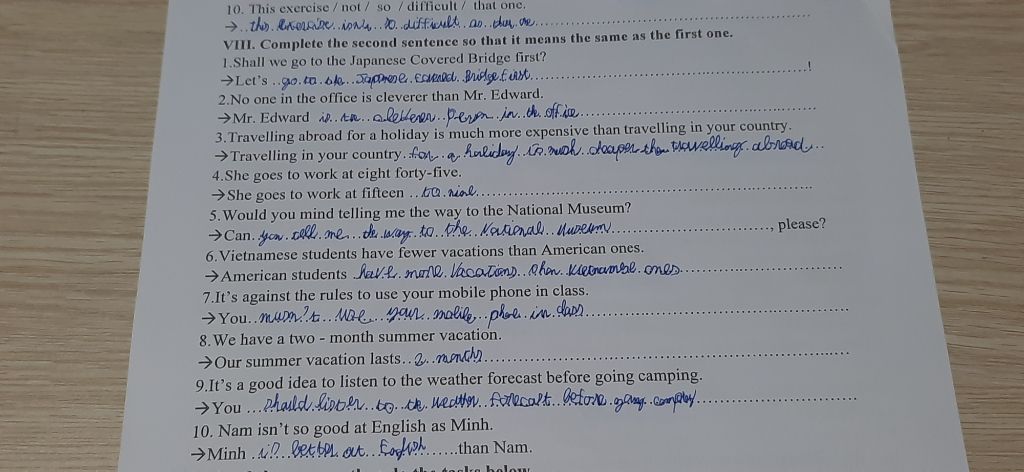 10. This exercise / not / so / difficult / that one.
→ this exercise isn't so difficult as that one
VIII. Complete the second sentence so that it means the same as the first one.
1.Shall we go to the Japanese Covered Bridge first?
→Let's go to the Japanese Covered Bridge first !
2.No one in the office is cleverer than Mr. Edward.
→Mr. Edward is the person in the office
3.Travelling abroad for a holiday is much more expensive than travelling in your country.
→Travelling in your country for a holiday is much cheaper than travelling abroad
4.She goes to work at eight forty-five.
→She goes to work at fifteen to nine
5.Would you mind telling me the way to the National Museum?
→Can you tell me the way to the National Museum , please?
6.Vietnamese students have fewer vacations than American ones.
→American students have more vacations than Vietnamese ones
7.It's against the rules to use your mobile phone in class.
→You musn't use your mobile phone in class
8.We have a two - month summer vacation.
→Our summer vacation lasts 2 months
9.It's a good idea to listen to the weather forecast before going camping.
→You should listen to the weather forecast before going camping
10. Nam isn't so good at English as Minh.
→Minh is better at English than Nam.